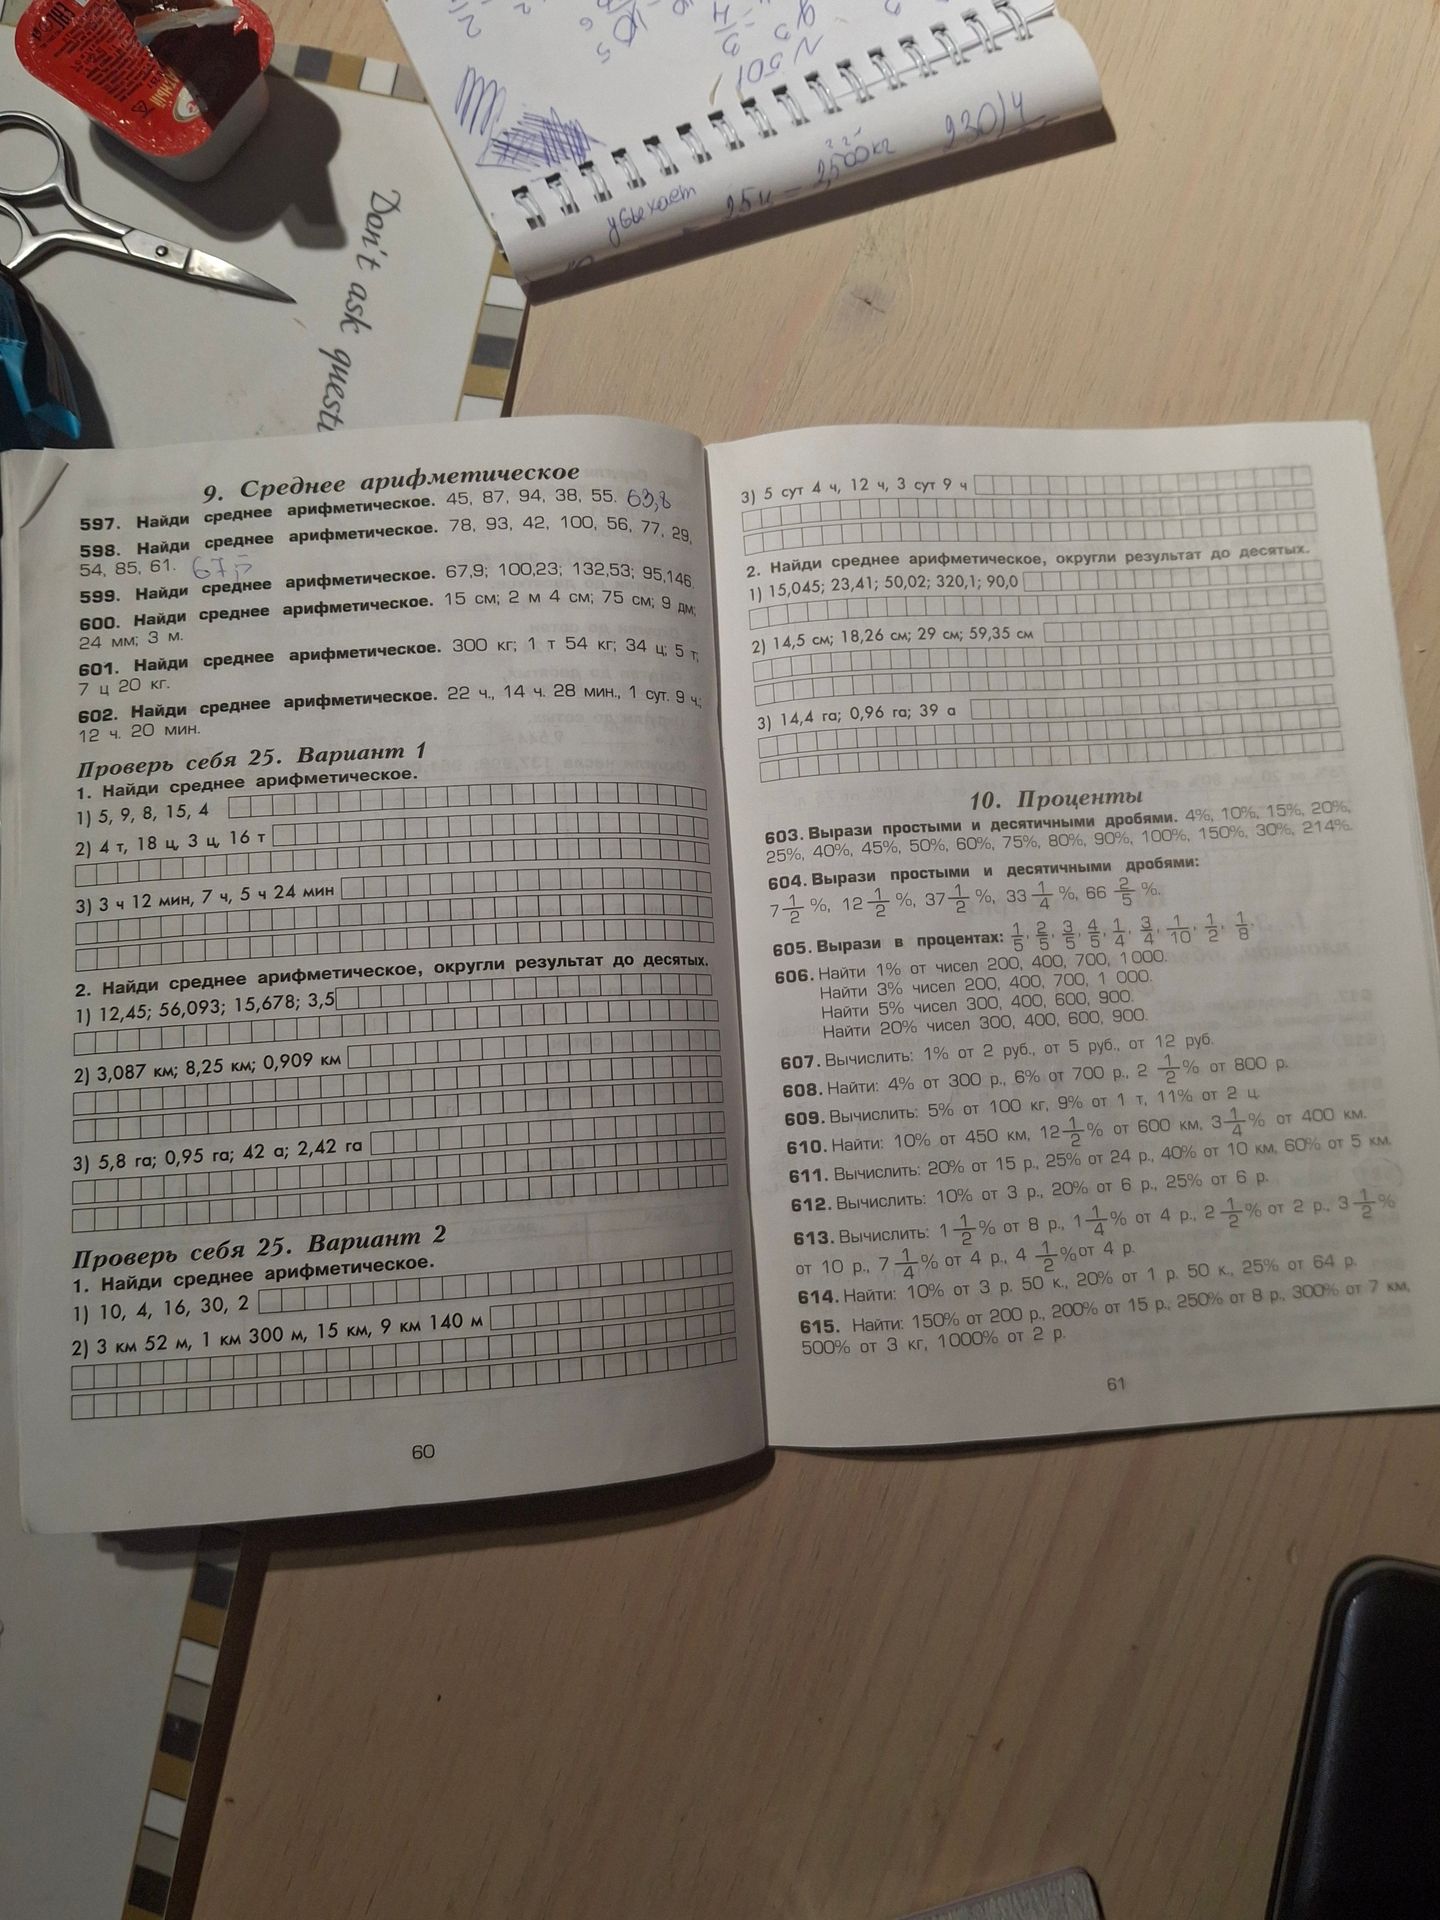 Don't ask questi
N 501
убыхает
25ц — 2,500кг
230)4
9. Среднее арифметическое
597. Найди среднее арифметическое. 45, 87, 94, 38, 55. 63,8
598. Найди среднее арифметическое. 78, 93, 42, 100, 56, 77, 29,
54, 85, 61. 67,5
599. Найди среднее арифметическое. 67,9; 100,23; 132,53; 95,146.
600. Найди среднее арифметическое. 15 см; 2 м 4 см; 75 см; 9 дм;
24 мм; 3 м.
601. Найди среднее арифметическое. 300 кг; 1 т 54 кг; 34 ц; 5 т;
7 ц 20 кг.
602. Найди среднее арифметическое. 22 ч., 14 ч. 28 мин., 1 сут. 9 ч;
12 ч. 20 мин.
Проверь себя 25. Вариант 1
1. Найди среднее арифметическое.
1) 5, 9, 8, 15, 4
2) 4 т, 18 ц, 3 ц, 16 т
3) 3 ч 12 мин, 7 ч, 5 ч 24 мин
2. Найди среднее арифметическое, округли результат до десятых.
1) 12,45; 56,093; 15,678; 3,5
2) 3,087 км; 8,25 км; 0,909 км
3) 5,8 га; 0,95 га; 42 а; 2,42 га
Проверь себя 25. Вариант 2
1. Найди среднее арифметическое.
1) 10, 4, 16, 30, 2
2) 3 км 52 м, 1 км 300 м, 15 км, 9 км 140 м
60
3) 5 сут 4 ч, 12 ч, 3 сут 9 ч
2. Найди среднее арифметическое, округли результат до десятых.
1) 15,045; 23,41; 50,02; 320,1; 90,0
2) 14,5 см; 18,26 см; 29 см; 59,35 см
3) 14,4 га; 0,96 га; 39 а
10. Проценты
603. Вырази простыми и десятичными дробями. 4%, 10%, 15%, 20%,
25%, 40%, 45%, 50%, 60%, 75%, 80%, 90%, 100%, 150%, 30%, 214%.
604. Вырази простыми и десятичными дробями:
7 1/2 %, 12 1/2 %, 37 1/2 %, 33 1/4 %, 66 2/5 %.
605. Вырази в процентах: 1/5, 2/5, 3/5, 4/5, 1/4, 3/4, 1/10, 1/2, 1/8.
606. Найти 1% от чисел 200, 400, 700, 1 000.
Найти 3% чисел 200, 400, 700, 1 000.
Найти 5% чисел 300, 400, 600, 900.
Найти 20% чисел 300, 400, 600, 900.
607. Вычислить: 1% от 2 руб., от 5 руб., от 12 руб.
608. Найти: 4% от 300 р., 6% от 700 р., 2 1/2 % от 800 р.
609. Вычислить: 5% от 100 кг, 9% от 1 т, 11% от 2 ц.
610. Найти: 10% от 450 км, 12 1/2 % от 600 км, 3 1/4 % от 400 км.
611. Вычислить: 20% от 15 р., 25% от 24 р., 40% от 10 км, 60% от 5 км.
612. Вычислить: 10% от 3 р., 20% от 6 р., 25% от 6 р.
613. Вычислить: 1 1/2 % от 8 р., 1 1/4 % от 4 р., 2 1/2 % от 2 р., 3 1/2 %
от 10 р., 7 1/4 % от 4 р., 4 1/2 % от 4 р.
614. Найти: 10% от 3 р. 50 к., 20% от 1 р. 50 к., 25% от 64 р.
615. Найти: 150% от 200 р., 200% от 15 р., 250% от 8 р., 300% от 7 км,
500% от 3 кг, 1000% от 2 р.
61